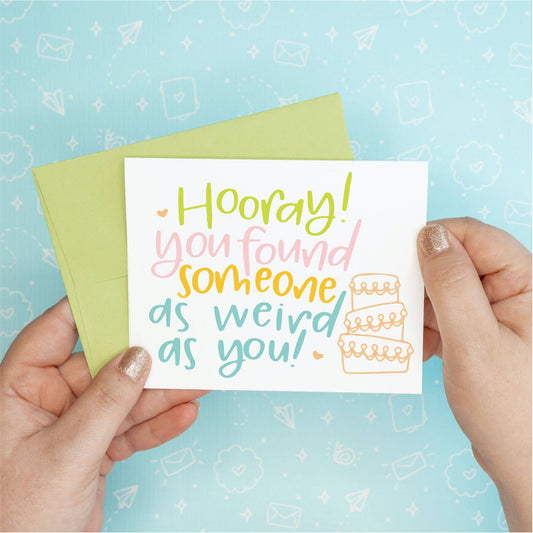 Hooray!
you found
someone
as weird
as you!